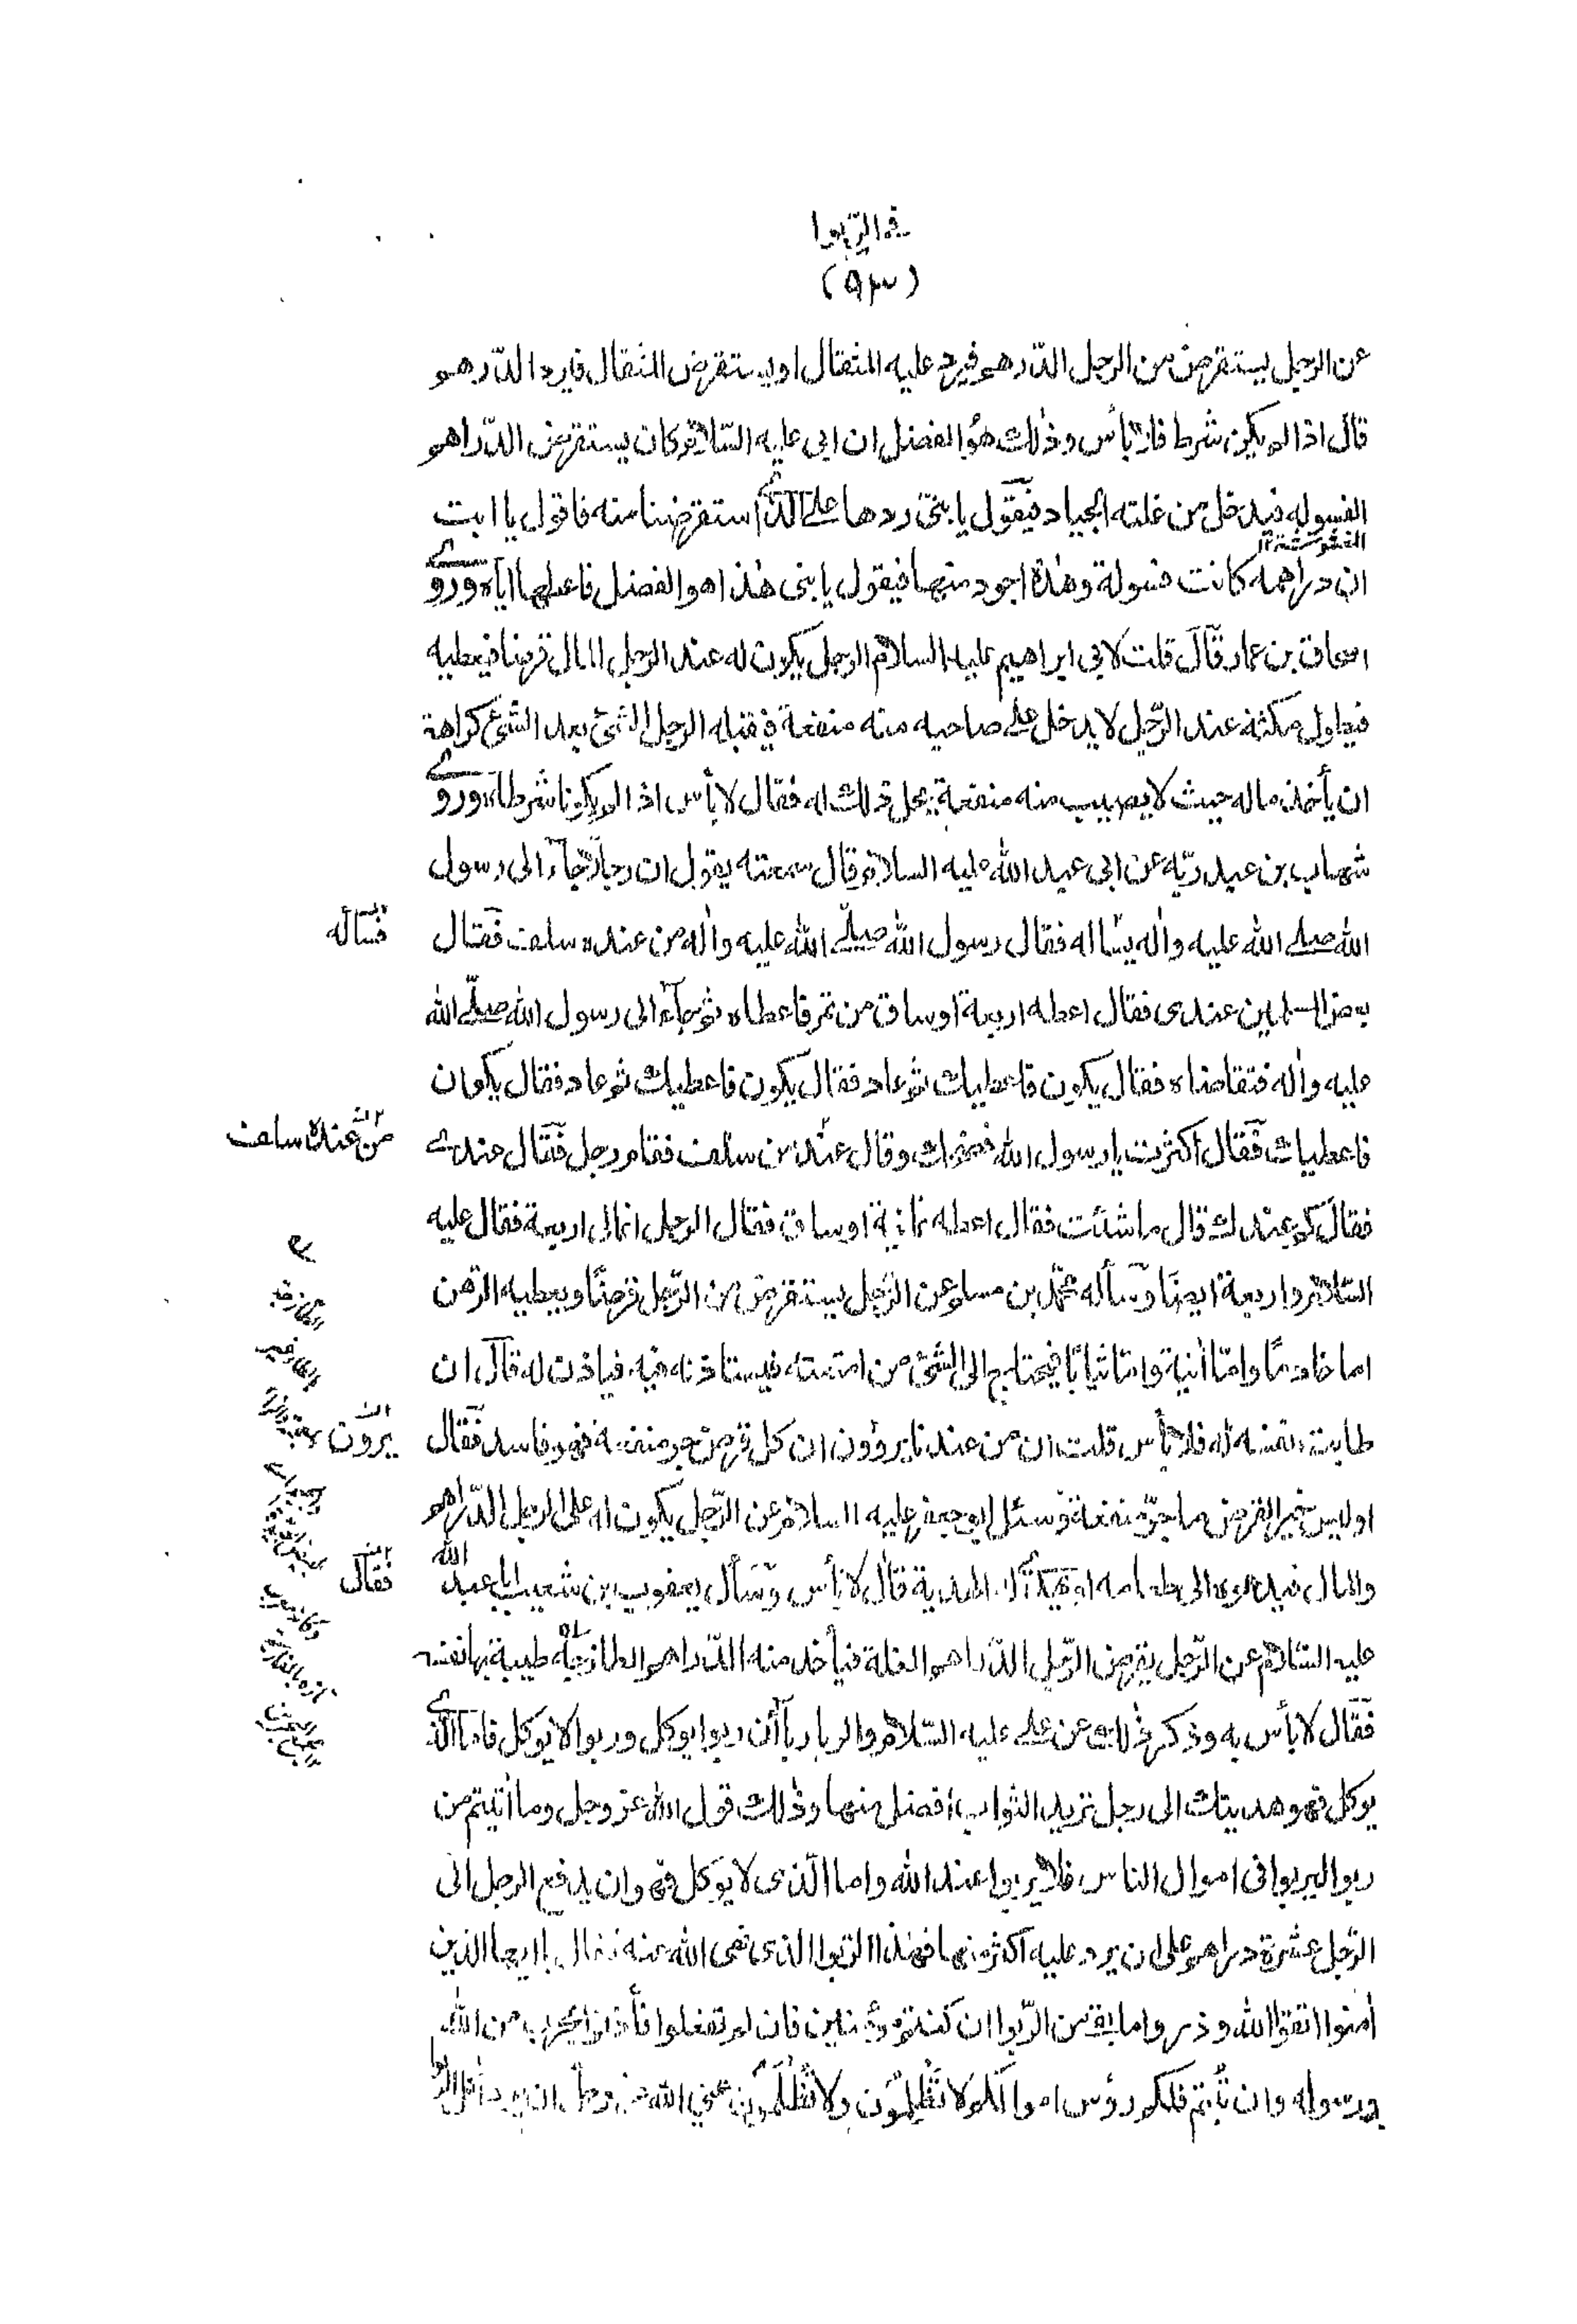 في الرّبوا
(٩٣)
عن الرجل يستقرض من الرجل الدّرهم فيرد عليه المثقال او يستقرض المثقال فيرد الدّرهم
قال اذا لم يكن شرط فلا بأس وذٰلك هو الفضل ان ابي عليه السّلام كان يستقرض الدّراهم
الفسوله فيدخل من غلته الجياد فيقول يا بنىّ ردها على الّذى استقرضنا منه فاقول يا ابت
ان دراهمه كانت فسولة وهٰذه اجود منها فيقول يا بنى هٰذا هو الفضل فاعطها اياه وروى
اسحاق بن عمار قال قلت لابى ابراهيم عليه السلام الرجل يكون له عند الرجل المال قرضا فيعطيه
فيطول مكثه عند الرّجل لا يدخل على صاحبه منه منفعة فينيله الرجل الشئ بعد الشئ كراهة
ان يأخذ ماله حيث لا يصيب منه منفعة يحل ذلك له فقال لا بأس اذا لم يكونا شرطاه وروى
شهاب بن عبد ربّه عن ابى عبد الله عليه السلام قال سمعته يقول ان رجلا جآء الى رسول
الله صلى الله عليه واٰله يسأله فقال رسول الله صلّى الله عليه واٰله من عنده سلف فقال
فسأله
بعض المسلمين عندى فقال اعطه اربعة اوساق من تمر فاعطاه ثم جآء الى رسول الله صلّى الله
عليه واٰله فتقاضاه فقال يكون فاعطيك ثم عاد فقال يكون فاعطيك ثم عاد فقال يكون
فاعطيك فقال اكثرت يا رسول الله فضحك وقال عند من سلف فقام رجل فقال عندى
من عنده سلف
فقال كم عندك قال ما شئت فقال اعطه ثمانية اوساق فقال الرجل انما لى اربعة فقال عليه
السّلام واربعة ايضًا وسأله محمّد بن مسلم عن الرّجل يستقرض من الرّجل قرضًا ويعطيه الرّهن
اما خادمًا وامّا اٰنية وامّا ثيابًا فيحتاج الى الشّئ من امتعته فيستاذنه فيه فياذن له قال ان
طابت نفسه له فلا بأس قلت ان من عندنا يروون ان كل قرض يجر منفعة فهو فاسد فقال
يرون
او ليس خير القرض ما جرّ منفعة وسئل ابو جعفر عليه السلام عن الرّجل يكون له على الرجل الدّراهم
والمال فيدعوه الى طعامه او يهدى له الهدية قال لا بأس وسأل يعقوب بن شعيب ابا عبد الله
فقال
عليه السّلام عن الرّجل يقرض الرّجل الدّراهم الغلة فيأخذ منه الدّراهم الطازجيّة طيبة بها نفسه
فقال لا بأس به وذكر ذٰلك عن على عليه السّلام والربا رباآن ربوا يوكل وربوا لا يوكل فامّا الّذى
يوكل فهو هديتك الى رجل تريد الثواب افضل منها وذٰلك قول الله عز وجل وما اٰتيتم من
ربوا ليربوا فى اموال الناس فلا يربوا عند الله واما الّذى لا يوكل فهو ان يدفع الرجل الى
الرّجل عشرة دراهم على ان يرد عليه اكثر منها فهٰذا الرّبوا الذى نهى الله عنه فقال يا ايها الذين
اٰمنوا اتقوا الله وذروا ما بقى من الرّبوا ان كنتم مؤمنين فان لم تفعلوا فأذنوا بحرب من الله
ورسوله وان تُبتم فلكم رؤس اموالكم لا تَظْلِمُون ولا تُظْلَمُون عنى الله عز وجل ان يرد